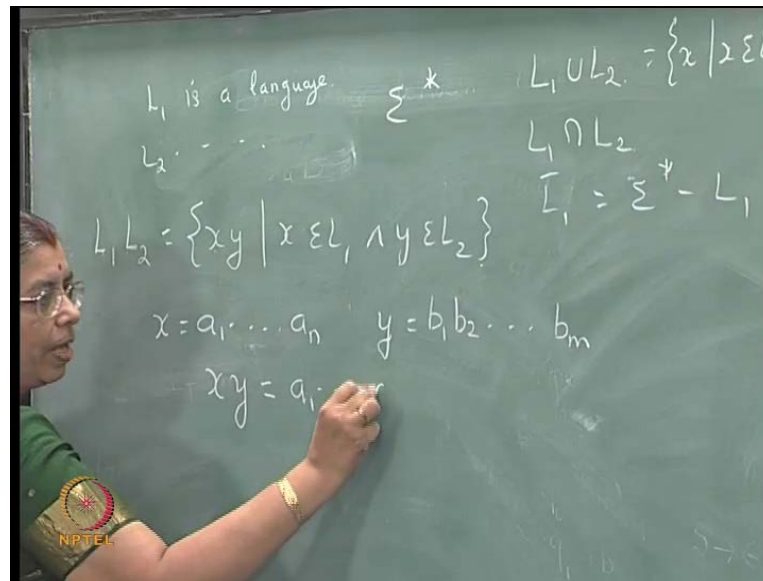 L₁ is a language. Σ*
L₂ . - - . .
L₁ ∪ L₂ = {x | x ∈ L
L₁ ∩ L₂
L̄₁ = Σ* - L₁
L₁ L₂ = {xy | x ∈ L₁ ∧ y ∈ L₂}
x = a₁ . . . . aₙ y = b₁ b₂ . . . bₘ
xy = a₁ .
NPTEL